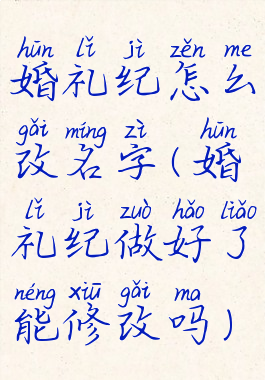 hūn lǐ jì zěn me
婚礼纪怎么
gǎi míng zì hūn
改名字(婚
lǐ jì zuò hǎo liǎo
礼纪做好了
néng xiū gǎi ma
能修改吗)